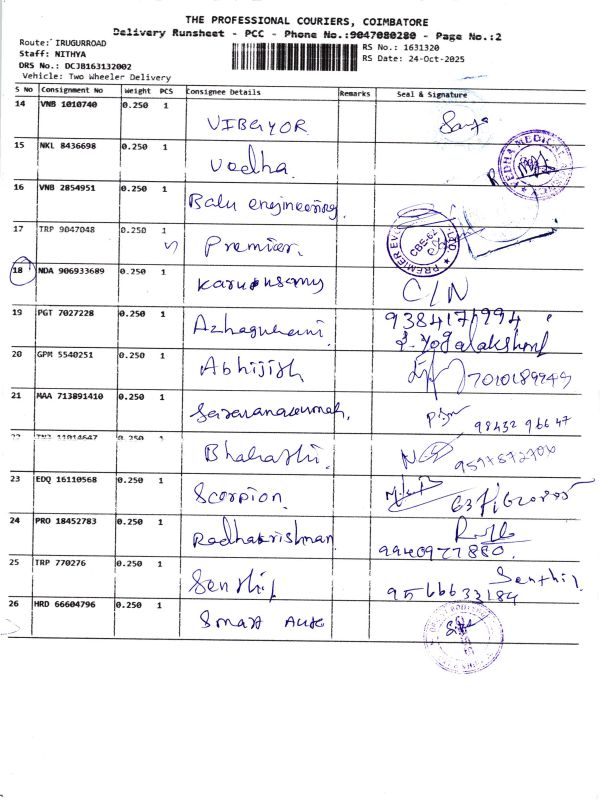 THE PROFESSIONAL COURIERS, COIMBATORE
Delivery Runsheet - PCC - Phone No.:9047080280 - Page No.:2
Route: IRUGURROAD
RS No.: 1631320
Staff: NITHYA
RS Date: 24-Oct-2025
DRS No.: DCJB163132002
Vehicle: Two Wheeler Delivery
S No Consignment No Weight PCS Consignee Details Remarks Seal & Signature
14 VNB 1010740 0.250 1
VIBGYOR
15 NKL 8436698 0.250 1
Vedha
VEDHA MEDICAL
16 VNB 2854951 0.250 1
Balu engineering
17 TRP 9047048 0.250 1
Premier
PREMIER
CBE-62
18 NDA 906933689 0.250 1
Karupusamy C/N
19 PGT 7027228 0.250 1
9384171994
Azhaguhami
20 GPM 5540251 0.250 1
Abhijith
21 MAA 713891410 0.250 1
Saravanakumar
98432 96647
0.250 1
Bharathi
23 EDQ 16110568 0.250 1
Scorpion
24 PRO 18452783 0.250 1
Radhakrishnan
9940977880
25 TRP 770276 0.250 1
Senthil
Senthil
9566633184
26 HRD 66604796 0.250 1
Smart Auto